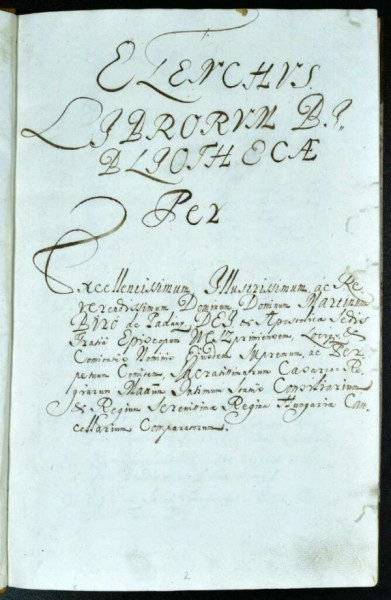 ELENCHVS
LIBRORVM BI
BLIOTHECÆ
Per
Excellentissimum, Illustrissimum, ac Re
verendissimum Dominum, Dominum Martinum
BIRO de Padány DEI & Apostolicæ Sedis
Gratiâ Episcopum WESZprimiensem, Loci &
Comitatûs Nominis Ejusdem Supremum, ac Per
petuum Comitem, Sacratissimarum Cæsareo-Re
giarum Intimum Statûs Consiliarium
& Regium Serenissimæ Reginæ Hungariæ Can
cellarium Comparatorum.
2